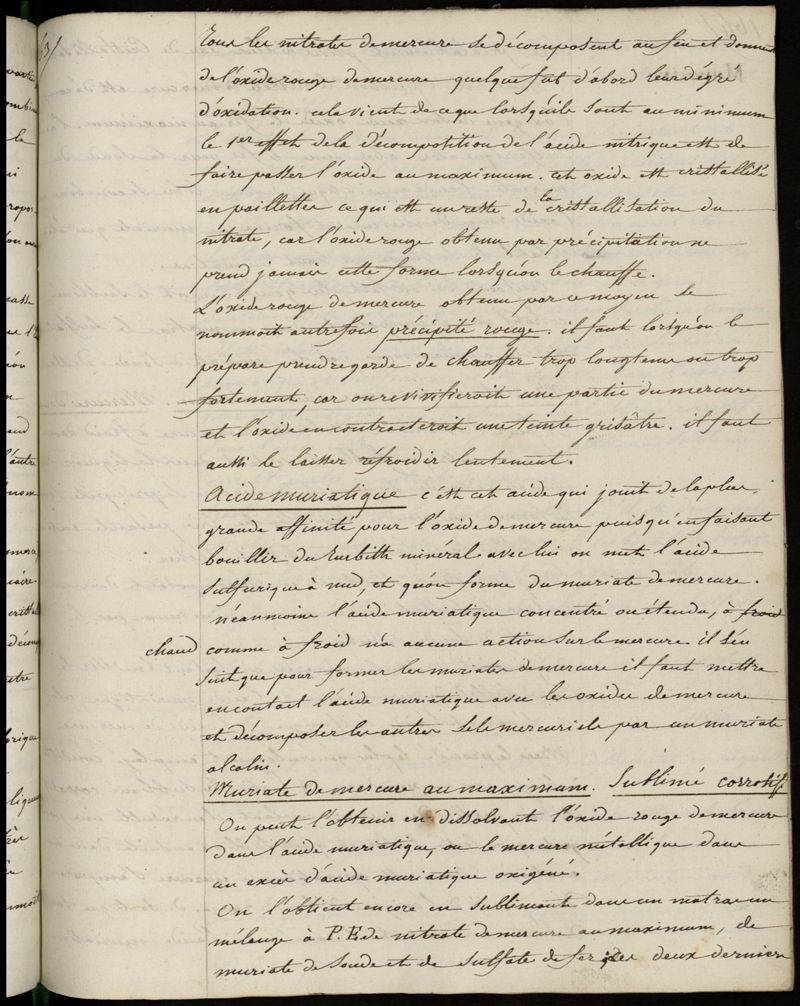 Tous les nitrates de mercure se décomposent au feu et donnent
de l'oxide rouge de mercure quelque fut d'abord leur dégré
d'oxidation. cela vient de ce que lorsqu'ils sont au minimum
le 1er effet de la décomposition de l'acide nitrique est de
faire passer l'oxide au maximum. cet oxide est cristallisé
en paillettes ce qui est un reste de la cristallisation du
nitrate, car l'oxide rouge obtenu par précipitation ne
prend jamais cette forme lorsqu'on le chauffe.
L'oxide rouge de mercure obtenu par ce moyen se
nommoit autrefois précipité rouge. il faut lorsqu'on le
prépare prendre garde de chauffer trop longtems ou trop
fortement, car on revivifieroit une partie du mercure
et l'oxide en contracteroit une teinte grisâtre. il faut
aussi le laisser refroidir lentement.
Acide muriatique c'est cet acide qui jouit de la plus
grande affinité pour l'oxide de mercure puisqu'en faisant
bouillir du turbith minéral avec lui on met l'acide
sulfurique à nud, et qu'on forme du muriate de mercure.
néanmoins l'acide muriatique concentré ou étendu, à froid
chaud comme à froid n'a aucune action sur le mercure. il s'en
suit que pour former les muriates de mercure il faut mettre
en contact l'acide muriatique avec les oxides de mercure
et décomposer les autres sels mercuriels par un muriate
alcalin.
Muriate de mercure au maximum. Sublimé corrosif
On peut l'obtenir en dissolvant l'oxide rouge de mercure
dans l'acide muriatique, ou le mercure métallique dans
un excès d'acide muriatique oxigéné.
On l'obtient encore en sublimant dans un matras un
mélange à P.E de nitrate de mercure au maximum, de
muriate de soude et de sulfate de fer, les deux derniers